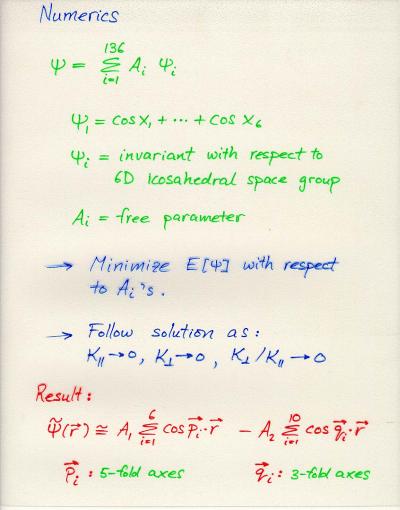 Numerics
Ψ = Σ_{i=1}^{136} A_i Ψ_i
Ψ_1 = cos x_1 + ⋯ + cos x_6
Ψ_i = invariant with respect to
6D icosahedral space group
A_i = free parameter
→ Minimize E[Ψ] with respect
to A_i's.
→ Follow solution as:
K_∥→0, K_⊥→0, K_⊥/K_∥→0
Result:
Ψ̃(r⃗) ≅ A_1 Σ_{i=1}^{6} cos p⃗_i·r⃗ - A_2 Σ_{i=1}^{10} cos q⃗_i·r⃗
p⃗_i: 5-fold axes q⃗_i: 3-fold axes